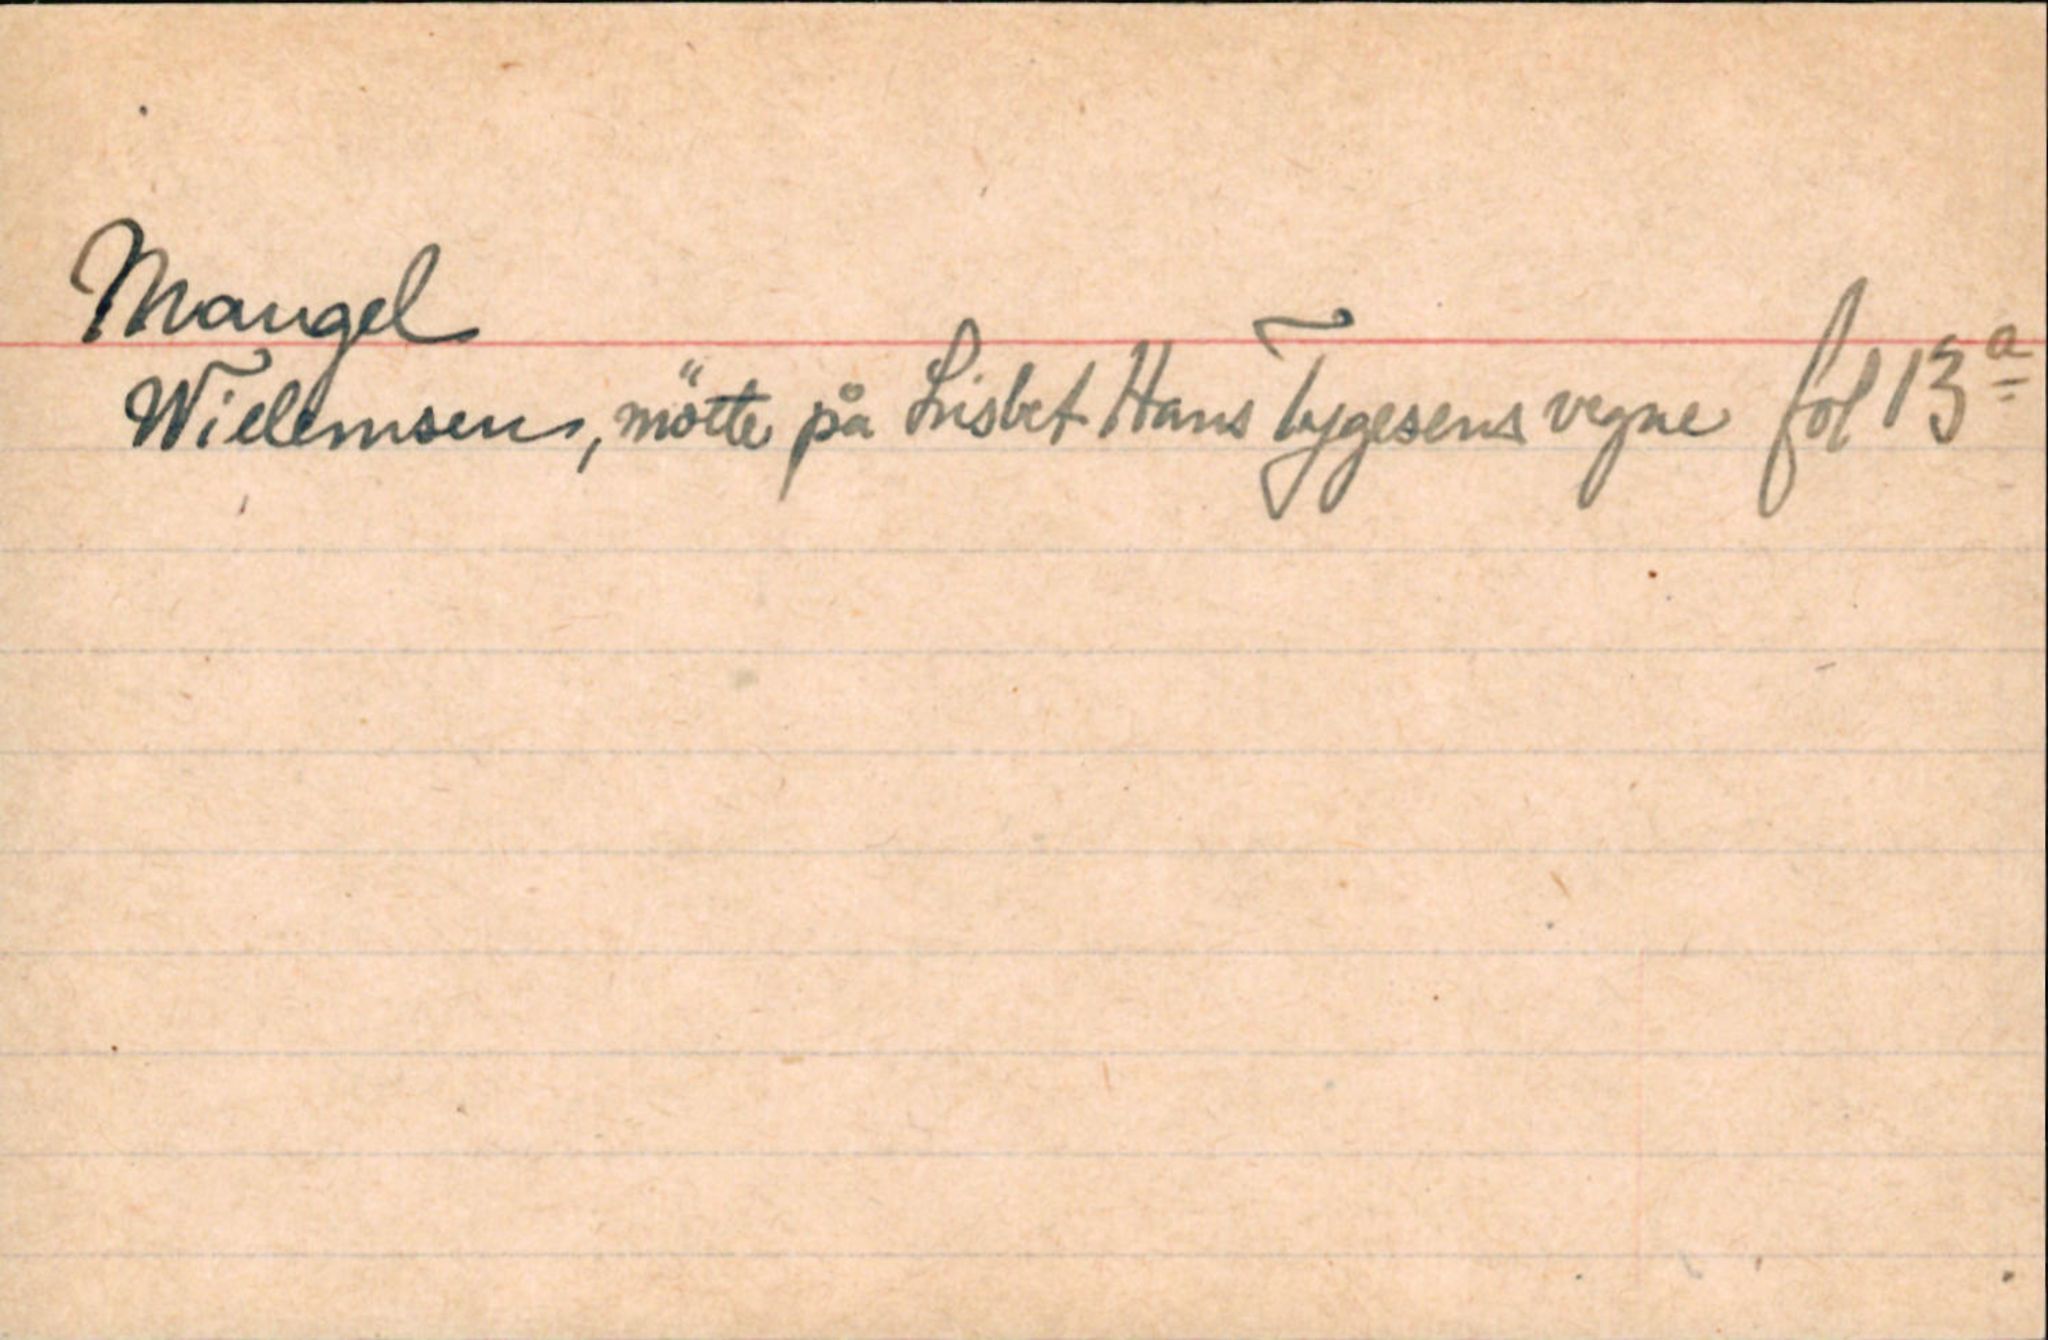 Mangel
Wielemsen, mötte på Lisbet Hans Tygesens vegne fol 13ª